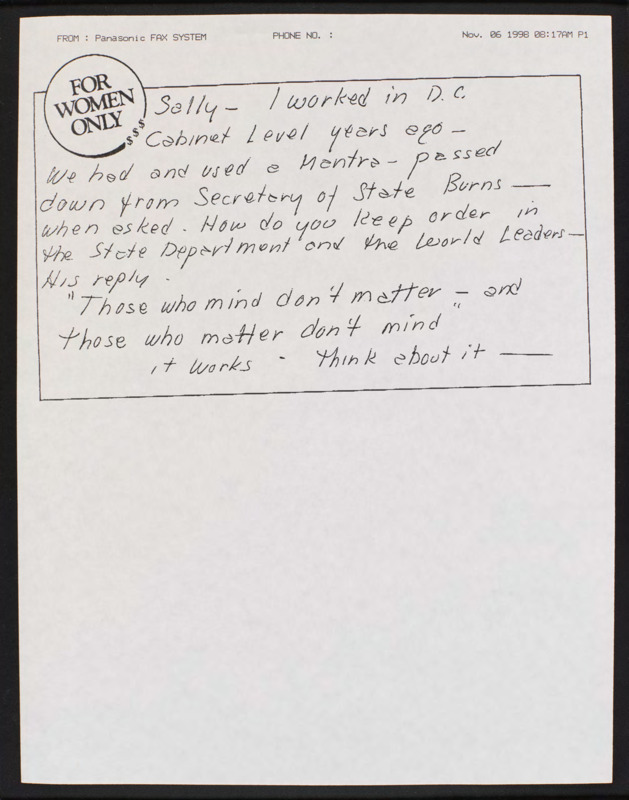 FROM : Panasonic FAX SYSTEM PHONE NO. : Nov. 06 1998 08:17AM P1
FOR
WOMEN
ONLY
$$$
Sally - I worked in D.C.
Cabinet Level years ago -
We had and used a Mantra - passed
down from Secretary of State Burns —
when asked. How do you keep order in
the State Department and the World Leaders —
His reply.
"Those who mind don't matter - and
those who matter don't mind"
it works - Think about it —